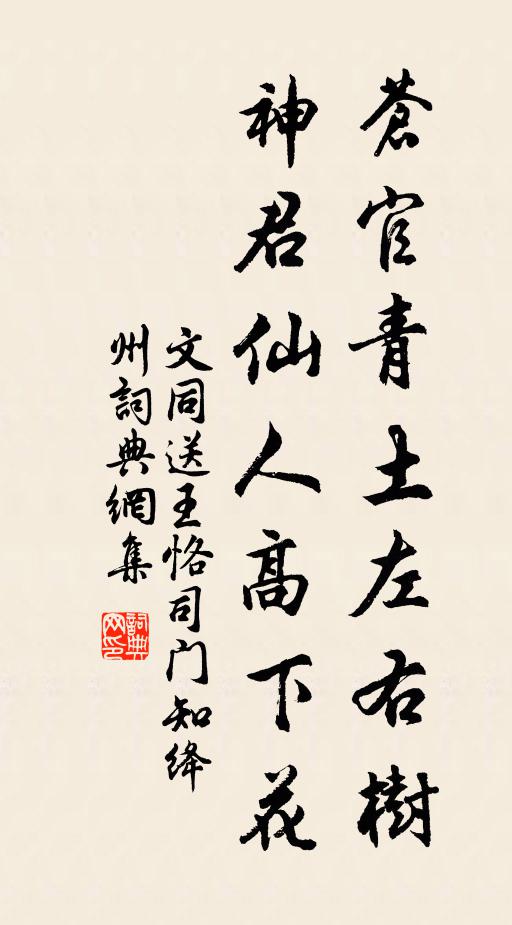 蒼官青土左右樹
神君仙人高下花
文同送王恪司门知绛
州詞典網集
詞典
网印